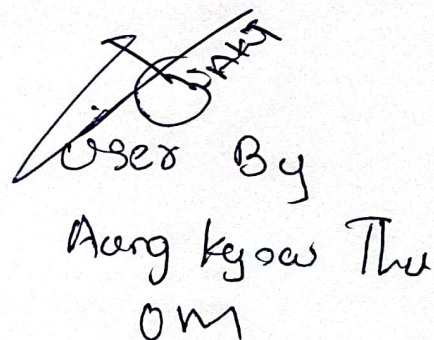 User By
Aung Kyaw Thu
OM